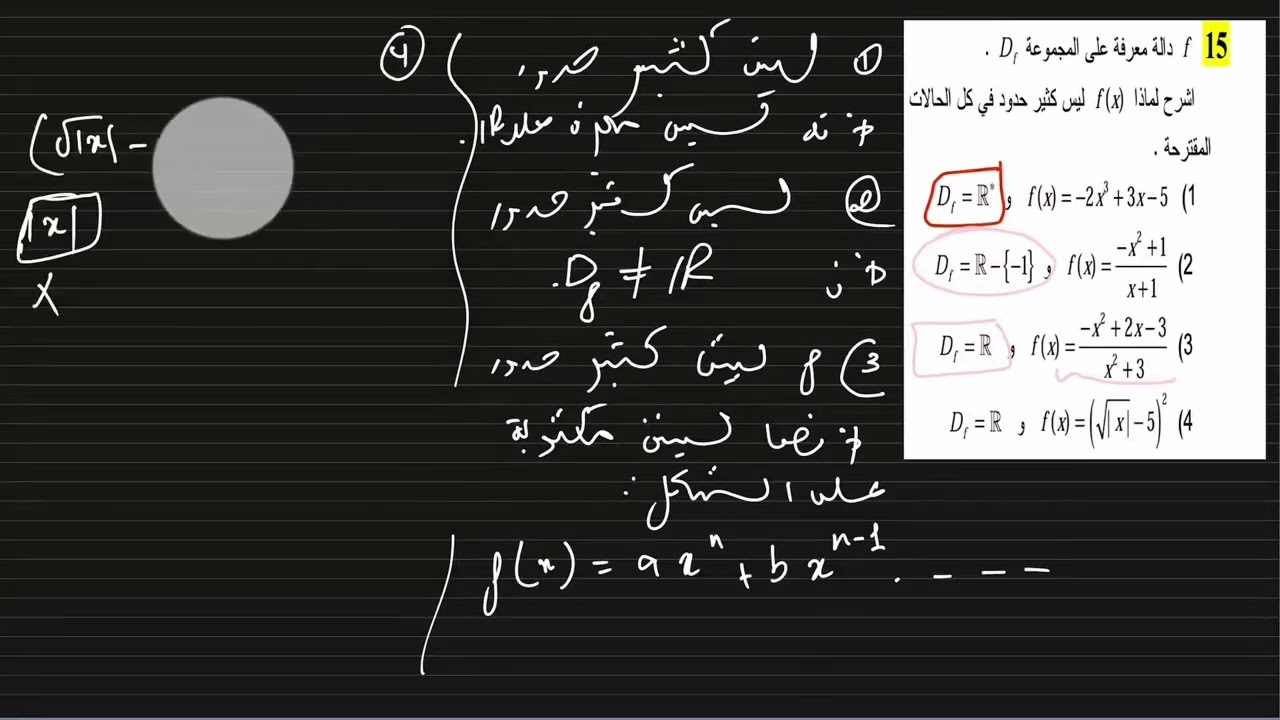 15 f دالة معرفة على المجموعة D_f .
اشرح لماذا f(x) ليس كثير حدود في كل الحالات
المقترحة .
1) f(x) = -2x³ + 3x - 5 و D_f = ℝ*
2) f(x) = (-x² + 1)/(x + 1) و D_f = ℝ - {-1}
3) f(x) = (-x² + 2x - 3)/(x² + 3) و D_f = ℝ
4) f(x) = (√|x| - 5)² و D_f = ℝ
① ليس كثير حدود
ليس على ℝ.
② ليس كثير حدود
D_f ≠ ℝ.
3) f ليس كثير حدود
ليس مكتوبة
على الشكل:
f(x) = a xⁿ + b xⁿ⁻¹ . - - -
④
(√|x| -
|x|
x